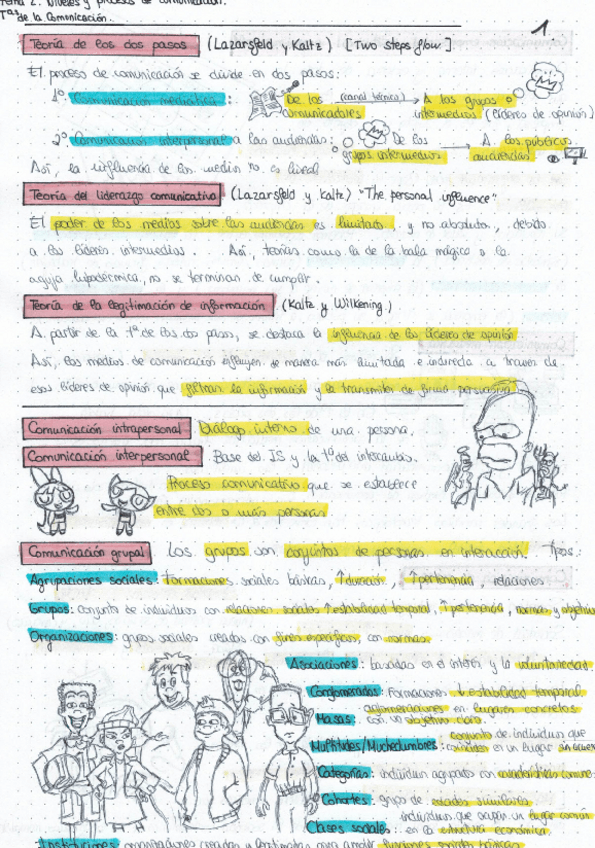 Tema 2. Niveles y procesos de comunicación.
Tª de la Comunicación.
1.
Teoría de los dos pasos (Lazarsfeld y Kaltz) [Two steps flow]
El proceso de comunicación se divide en dos pasos:
1º. Comunicación mediática: De los comunicadores (canal técnico) → A los grupos intermedios (líderes de opinión)
2º. Comunicación interpersonal a las audiencias. De los grupos intermedios → A los públicos audiencias
Así, la influencia de los medios no es lineal
Teoría del liderazgo comunicativo (Lazarsfeld y Kaltz) "The personal influence"
El poder de los medios sobre las audiencias es limitado, y no absoluto, debido
a los líderes intermedios. Así, teorías como la de la bala mágica o la
aguja hipodérmica, no se terminan de cumplir.
Teoría de la legitimación de información (Kaltz y Wilkening)
A partir de la Tª de los dos pasos, se destaca la influencia de los líderes de opinión
Así, los medios de comunicación influyen de manera más limitada e indirecta a través de
esos líderes de opinión que filtran la información y la transmiten de forma persuasiva
Comunicación intrapersonal Diálogo interno de una persona.
Comunicación interpersonal Base del IS y la Tª del intercambio.
Proceso comunicativo que se establece
entre dos o más personas
Comunicación grupal Los grupos son conjuntos de personas en interacción. Tipos:
Agrupaciones sociales: Formaciones sociales básicas, ↑duración, ↑pertenencia, relaciones
Grupos: conjunto de individuos con relaciones sociales ↑estabilidad temporal, ↑pertenencia, normas y objetivos
Organizaciones: grupos sociales creados con fines específicos, con normas
Asociaciones: basadas en el interés y la voluntariedad.
Conglomerados: Formaciones ↓estabilidad temporal
aglomeraciones en lugares concretos
Masas: con un objetivo claro.
Multitudes/Muchedumbres: conjunto de individuos que
coinciden en un lugar sin
Categorías: individuos agrupados con características comunes
Cohortes: grupo de edades similares
Clases sociales: individuos que ocupan un lugar común
en la estructura económica.
Instituciones: organizaciones creadas y legitimadas para cumplir funciones sociales básicas